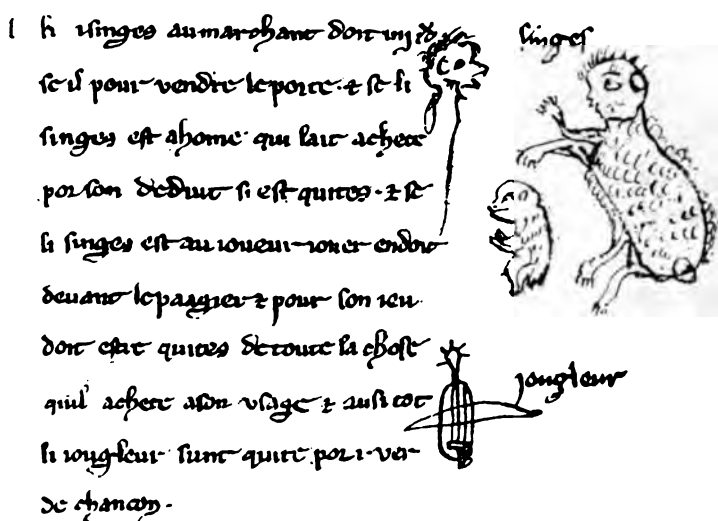 li singes au marchant doit iiij d
se il pour vendre le porte · ⁊ se li
singes est a home qui lait achete
por son deduit si est quites · ⁊ se
li singes est au ioueur iouer en doit
devant le paagier ⁊ pour son ieu
doit estre quites de toute la chose
quil achete a son usage ⁊ ausi tot
li iougleur sunt quite por ·i· ver
de chancon ·
singes
jougleur